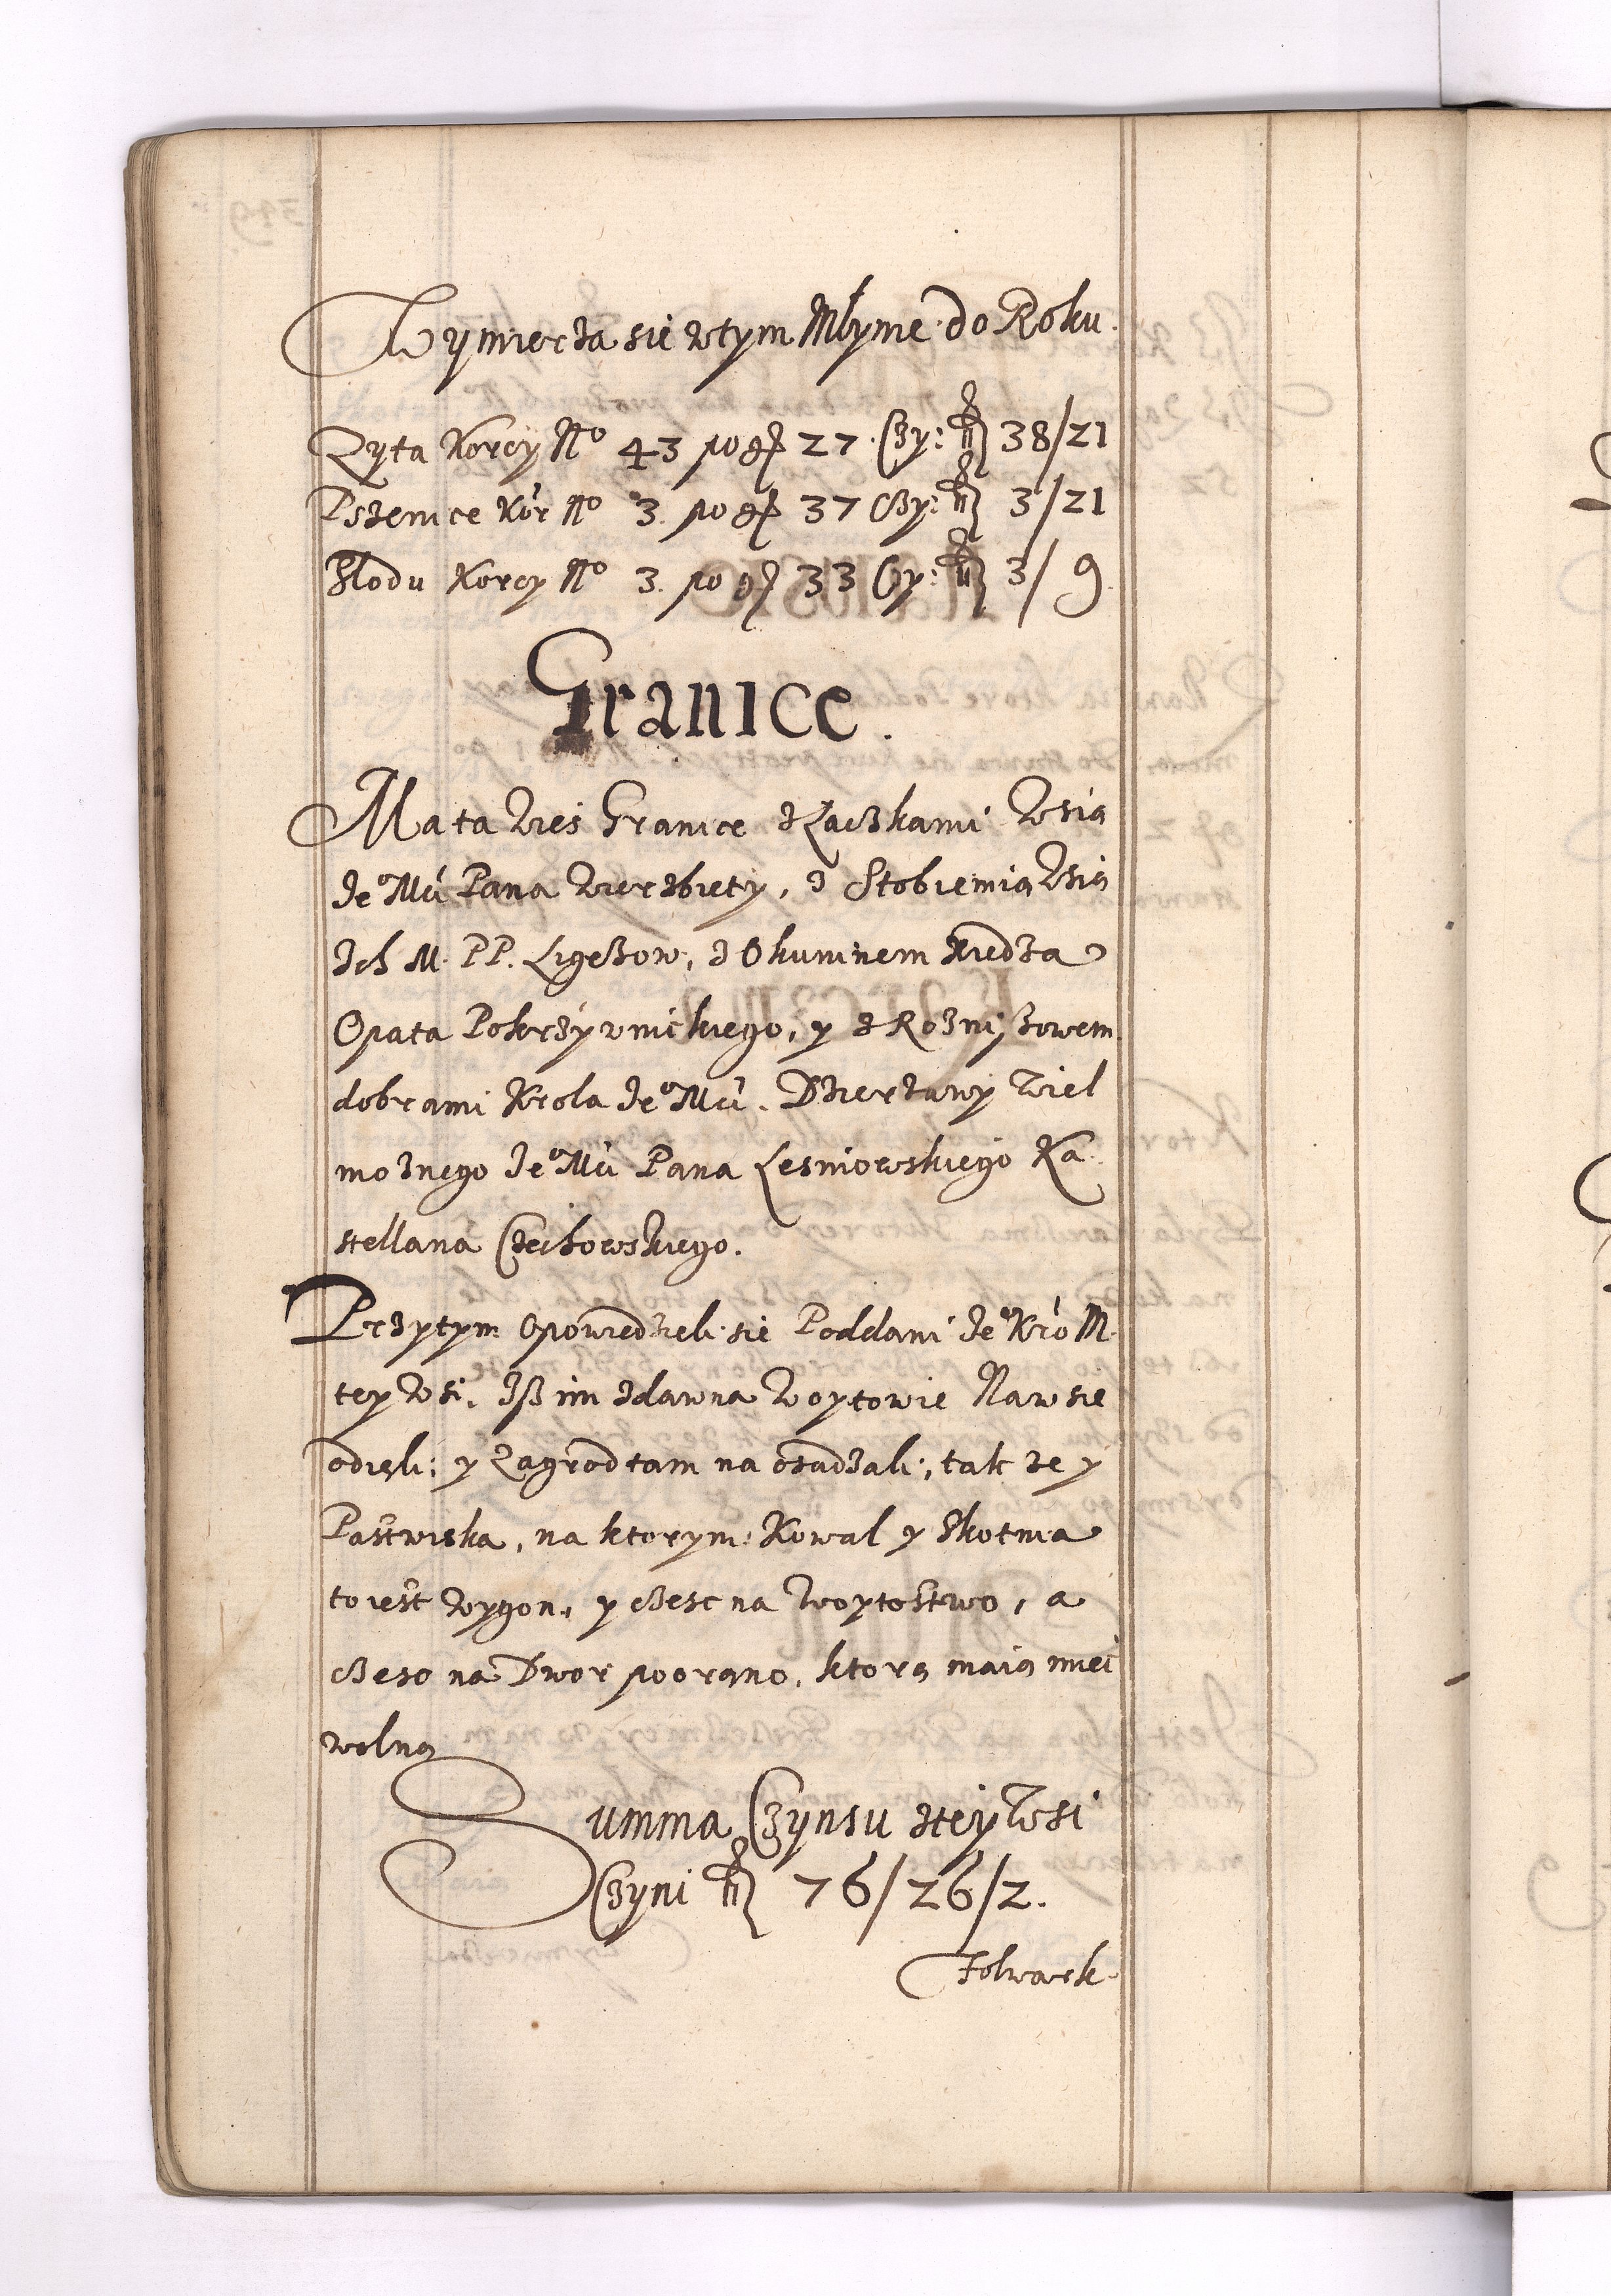 Wymierza sie wtym Młynie do Roku.
Zyta Korcy No 43 po gr 27. Czy: fl 38/21
Pszenice Kor No 3. po gr 37 Czy: fl 3/21
Słodu Korcy No 3. po gr 33 Cy: fl 3/9.
Granice.
Ma ta wieś Granice z Laczkami wsią
Je°Mći Pana Wierzbiety, z Stobiemią wsią
Ich M. PP. Ligęzow, z Okuninem Xiedza
Opata Pokrzywnickiego, y z Rozniszowem
dobrami Krola Je°Mći. Dzierzawy Wiel
moznego Je°Mći Pana Lesniowskiego Ka
stellana Czechowskiego.
Przytym Opowiedzieli sie Poddani Je° Kro M.
tey wsi, Isz im zdawna Woytowie Nawsie
odieli; y Zagrod tam na osadzali; tak ze y
Pastwiska, na ktorym Kowal y Skotnia
to iest wygon, y czesc na Woytostwo, a
czesc na Dwor poorano, ktorą maią miec
wolną
Summa Czynsu ztey Wsi
Czyni fl 76/26/2.
Folwark.